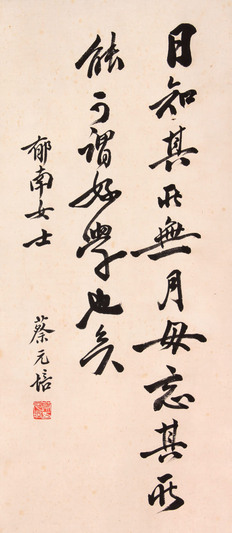 日知其所無月毋忘其所
能可謂好學也矣
郁南女士
蔡元培